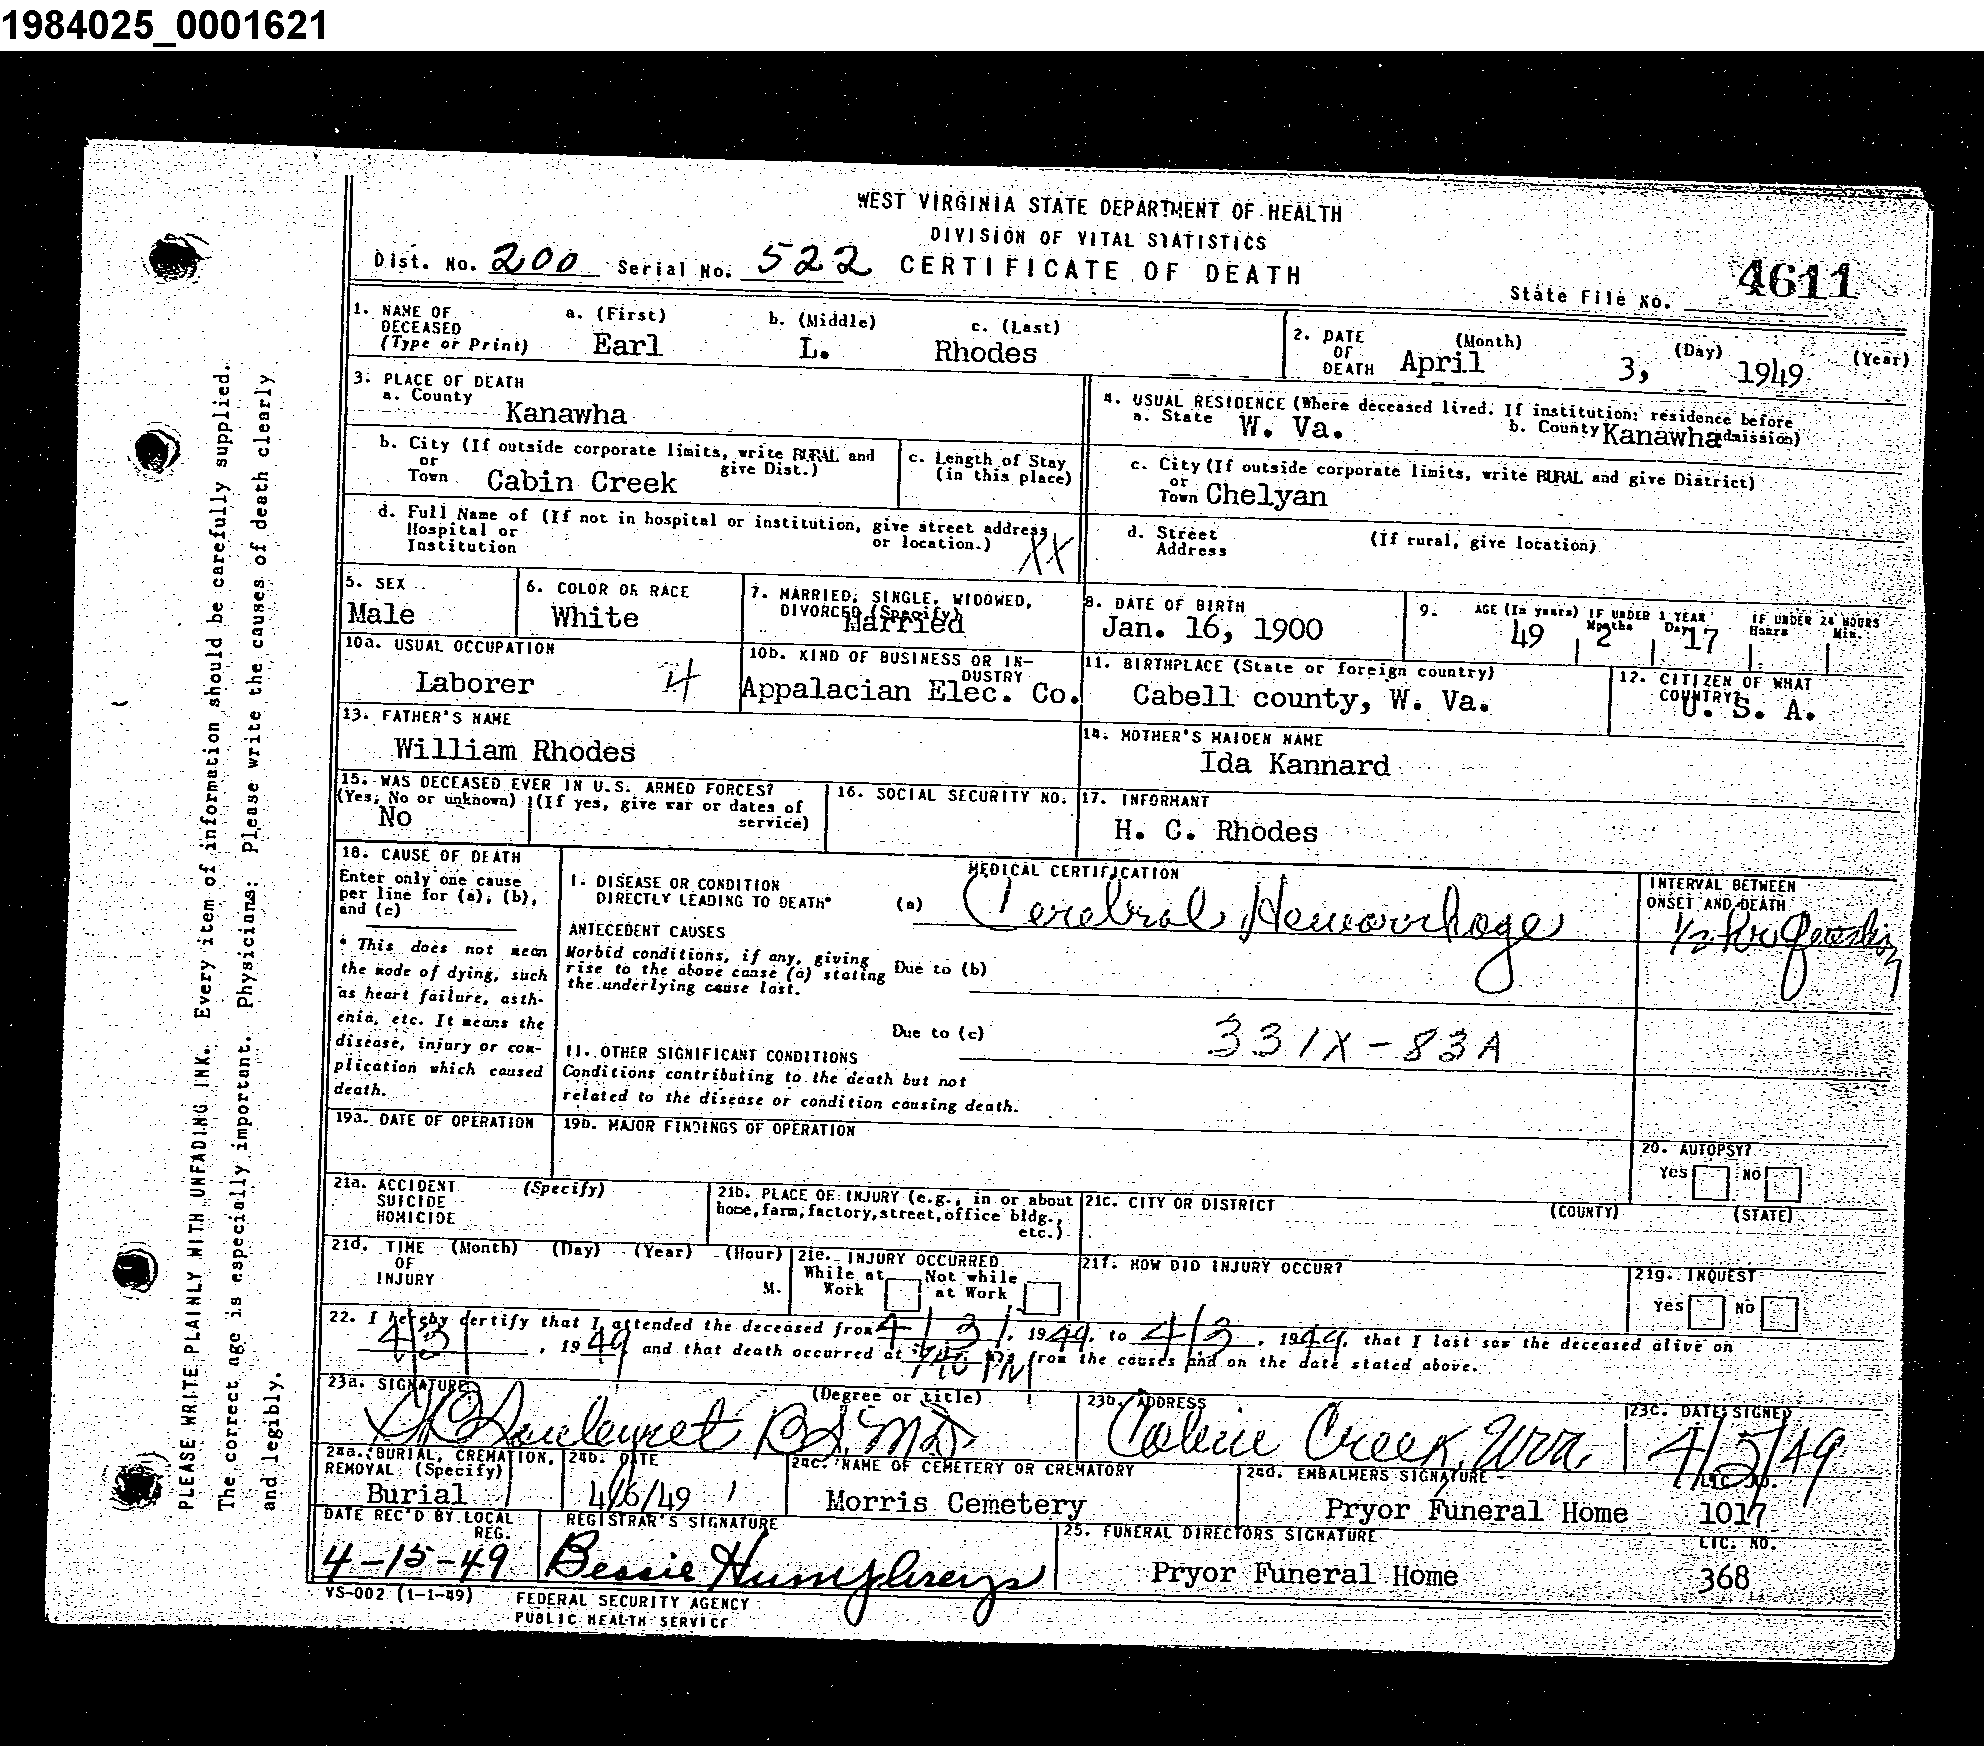 1984025_0001621
WEST VIRGINIA STATE DEPARTMENT OF HEALTH
DIVISION OF VITAL STATISTICS
Dist. No. 200 Serial No. 522 CERTIFICATE OF DEATH
State File No. 4611
1. NAME OF DECEASED (Type or Print) a. (First) Earl b. (Middle) L. c. (Last) Rhodes
2. DATE OF DEATH (Month) April (Day) 3, (Year) 1949
3. PLACE OF DEATH
a. County Kanawha
b. City (If outside corporate limits, write RURAL and give Dist.) or Town Cabin Creek
c. Length of Stay (in this place)
d. Full Name of (If not in hospital or institution, give street address or location.) Hospital or Institution XX
4. USUAL RESIDENCE (Where deceased lived. If institution: residence before admission)
a. State W. Va. b. County Kanawha
c. City (If outside corporate limits, write RURAL and give District) or Town Chelyan
d. Street Address (If rural, give location)
5. SEX Male
6. COLOR OR RACE White
7. MARRIED, SINGLE, WIDOWED, DIVORCED (Specify) Married
8. DATE OF BIRTH Jan. 16, 1900
9. AGE (In years) 49 IF UNDER 1 YEAR Months 2 Days 17 IF UNDER 24 HOURS Hours Min.
10a. USUAL OCCUPATION Laborer 4
10b. KIND OF BUSINESS OR INDUSTRY Appalacian Elec. Co.
11. BIRTHPLACE (State or foreign country) Cabell county, W. Va.
12. CITIZEN OF WHAT COUNTRY? U. S. A.
13. FATHER'S NAME William Rhodes
14. MOTHER'S MAIDEN NAME Ida Kannard
15. WAS DECEASED EVER IN U.S. ARMED FORCES? (Yes, No or unknown) No (If yes, give war or dates of service)
16. SOCIAL SECURITY NO.
17. INFORMANT H. C. Rhodes
18. CAUSE OF DEATH
Enter only one cause per line for (a), (b), and (c)
* This does not mean the mode of dying, such as heart failure, asthenia, etc. It means the disease, injury or complication which caused death.
MEDICAL CERTIFICATION
I. DISEASE OR CONDITION DIRECTLY LEADING TO DEATH* (a) Cerebral Hemorrhage
INTERVAL BETWEEN ONSET AND DEATH 1/2 hr
ANTECEDENT CAUSES
Morbid conditions, if any, giving rise to the above cause (a) stating the underlying cause last.
Due to (b)
Due to (c) 331X-83A
II. OTHER SIGNIFICANT CONDITIONS
Conditions contributing to the death but not related to the disease or condition causing death.
19a. DATE OF OPERATION
19b. MAJOR FINDINGS OF OPERATION
20. AUTOPSY? Yes No
21a. ACCIDENT SUICIDE HOMICIDE (Specify)
21b. PLACE OF INJURY (e.g., in or about home, farm, factory, street, office bldg., etc.)
21c. CITY OR DISTRICT (COUNTY) (STATE)
21d. TIME OF INJURY (Month) (Day) (Year) (Hour) M.
21e. INJURY OCCURRED While at Work Not while at Work
21f. HOW DID INJURY OCCUR?
21g. INQUEST Yes No
22. I hereby certify that I attended the deceased from 4/3/, 1949, to 4/3, 1949, that I last saw the deceased alive on
4/3, 1949 and that death occurred at PM from the causes and on the date stated above.
23a. SIGNATURE (Degree or title) MD
23b. ADDRESS Cabin Creek, W Va.
23c. DATE SIGNED 4/5/49
24a. BURIAL, CREMATION, REMOVAL (Specify) Burial
24b. DATE 4/6/49
24c. NAME OF CEMETERY OR CREMATORY Morris Cemetery
24d. EMBALMERS SIGNATURE Pryor Funeral Home LIC. NO. 1017
DATE REC'D BY LOCAL REG. 4-15-49
REGISTRAR'S SIGNATURE Bessie Humphreys
25. FUNERAL DIRECTORS SIGNATURE Pryor Funeral Home LIC. NO. 368
VS-002 (1-1-49) FEDERAL SECURITY AGENCY
PUBLIC HEALTH SERVICE
PLEASE WRITE PLAINLY WITH UNFADING INK. Every item of information should be carefully supplied.
The correct age is especially important. Physicians: Please write the causes of death clearly
and legibly.